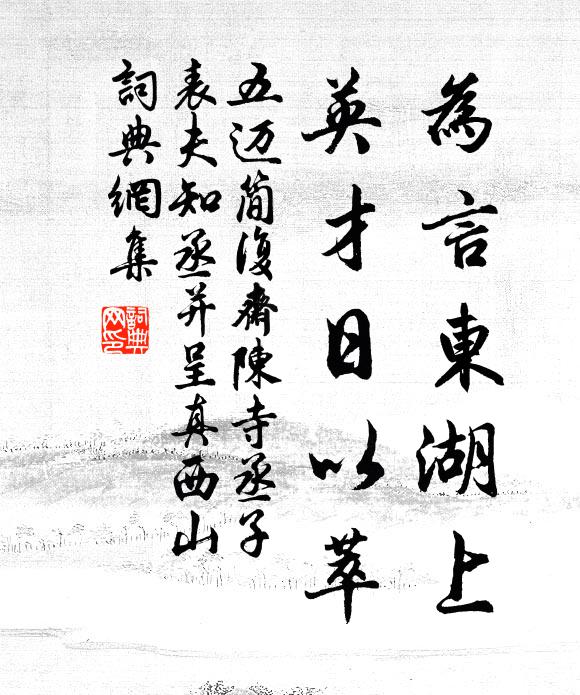 為言東湖上
英才日以萃
五迈簡復齋陳寺丞子
表夫知丞并呈真西山
詞典網集
詞典网印